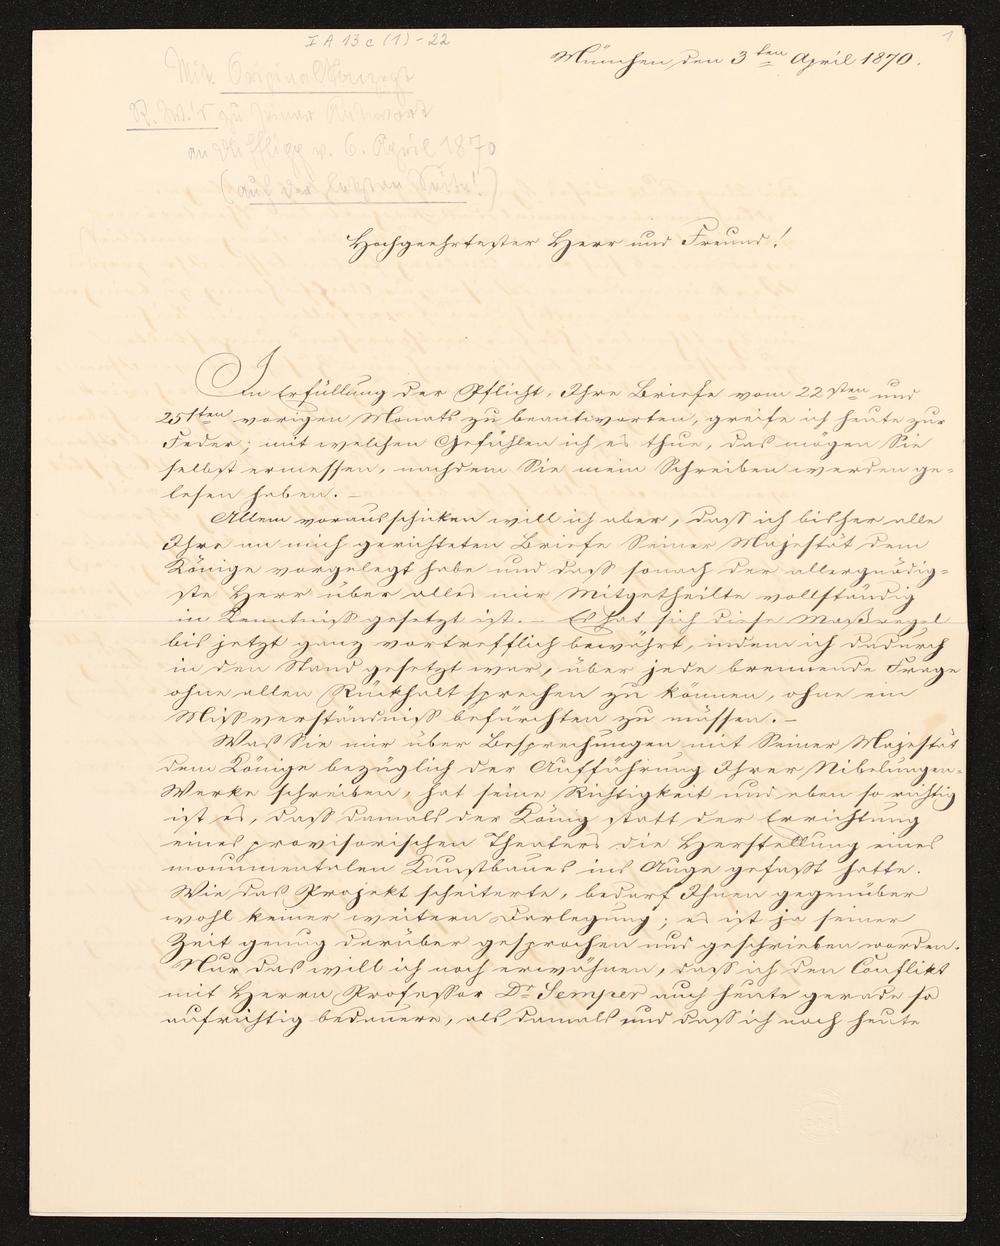 I A 13 c (1) - 22
1
Mit Originalkonzept
R. W.'s zu seiner Antwort
an Düfflipp v. 6. April 1870
(auf der letzten Seite!)
München den 3ten April 1870.
Hochgeehrtester Herr und Freund!
In Erfüllung der Pflicht, Ihre Briefe vom 22sten und
25sten vorigen Monats zu beantworten, greife ich heute zur
Feder; mit welchen Gefühlen ich es thue, das mögen Sie
selbst ermessen, nachdem Sie mein Schreiben werden ge-
lesen haben. –
Allem vorausschicken will ich aber, daß ich bisher alle
Ihre an mich gerichteten Briefe Seiner Majestät dem
Könige vorgelegt habe und daß sonach der allergnädig-
ste Herr über alles mir Mitgetheilte vollständig
in Kenntniß gesetzt ist. – Es hat sich diese Maßregel
bis jetzt ganz vortrefflich bewährt, indem ich dadurch
in den Stand gesetzt war, über jede brennende Frage
ohne allen Rückhalt sprechen zu können, ohne ein
Mißverständniß befürchten zu müssen. –
Was Sie mir über Besprechungen mit Seiner Majestät
dem Könige bezüglich der Aufführung Ihrer Nibelungen-
Werke schreiben, hat seine Richtigkeit und eben so richtig
ist es, daß damals der König statt der Errichtung
eines provisorischen Theaters die Herstellung eines
monumentalen Kunstbaues ins Auge gefaßt hatte.
Wie das Projekt scheiterte, bedarf Ihnen gegenüber
wohl keiner weitern Darlegung; es ist ja seiner
Zeit genug darüber gesprochen und geschrieben worden.
Nur das will ich noch erwähnen, daß ich den Conflikt
mit Herrn Professor Dr Semper auch heute gerade so
aufrichtig bedauere, als damals und daß ich noch heute